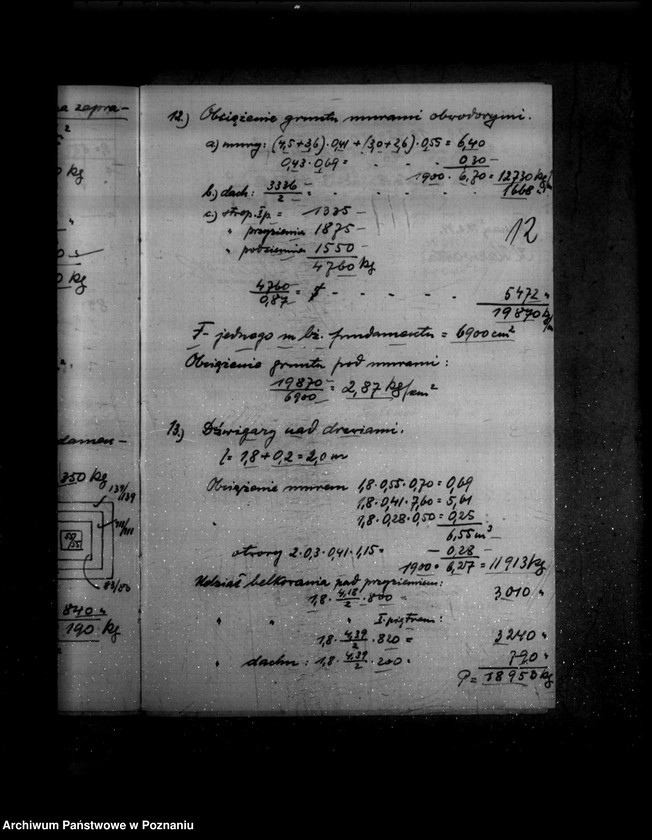 na zapra-
kg
kg
damen-
350 kg
139/139
111/111
55/55
83/83
840 "
190 kg
12.) Obciążenie gruntu murami obwodowymi.
a) mury: (4,5+3,6)·0,41 + (3,0+2,6)·0,55 = 6,40
0,43·0,69 = - - - 0,30 -
1900 · 6,70 = 12730 kg/m
b.) dach: 3336/2 = - - - - - 1668 "
c.) strop. Ip. = 1335 -
" przyziemia 1875 -
12
" podziemia 1550 -
4760 kg
4760/0,87 = - - - - 5472 "
19870 kg/m
F- jednego m bż. fundamentu = 6900 cm²
Obciążenie gruntu pod murami:
19870/6900 = 2,87 kg/cm²
13.) Dźwigary nad drzwiami.
l = 1,8 + 0,2 = 2,0 m
Obciążenie murem 1,8·0,55·0,70 = 0,69
1,8·0,41·7,60 = 5,61
1,8·0,28·0,50 = 0,25
6,55 m³
otwory 2·0,3·0,41·1,15 = - 0,28 -
1900 · 6,27 = 11913 kg
Udział belkowania nad przyziemiem:
1,8 · 4,18/2 · 800 = 3,010 "
" " " I. piętrem:
1,8 · 4,39/2 · 820 = 3240 "
" dachu: 1,8 · 4,39/2 · 200 = 790 "
P = 18950 kg
Archiwum Państwowe w Poznaniu